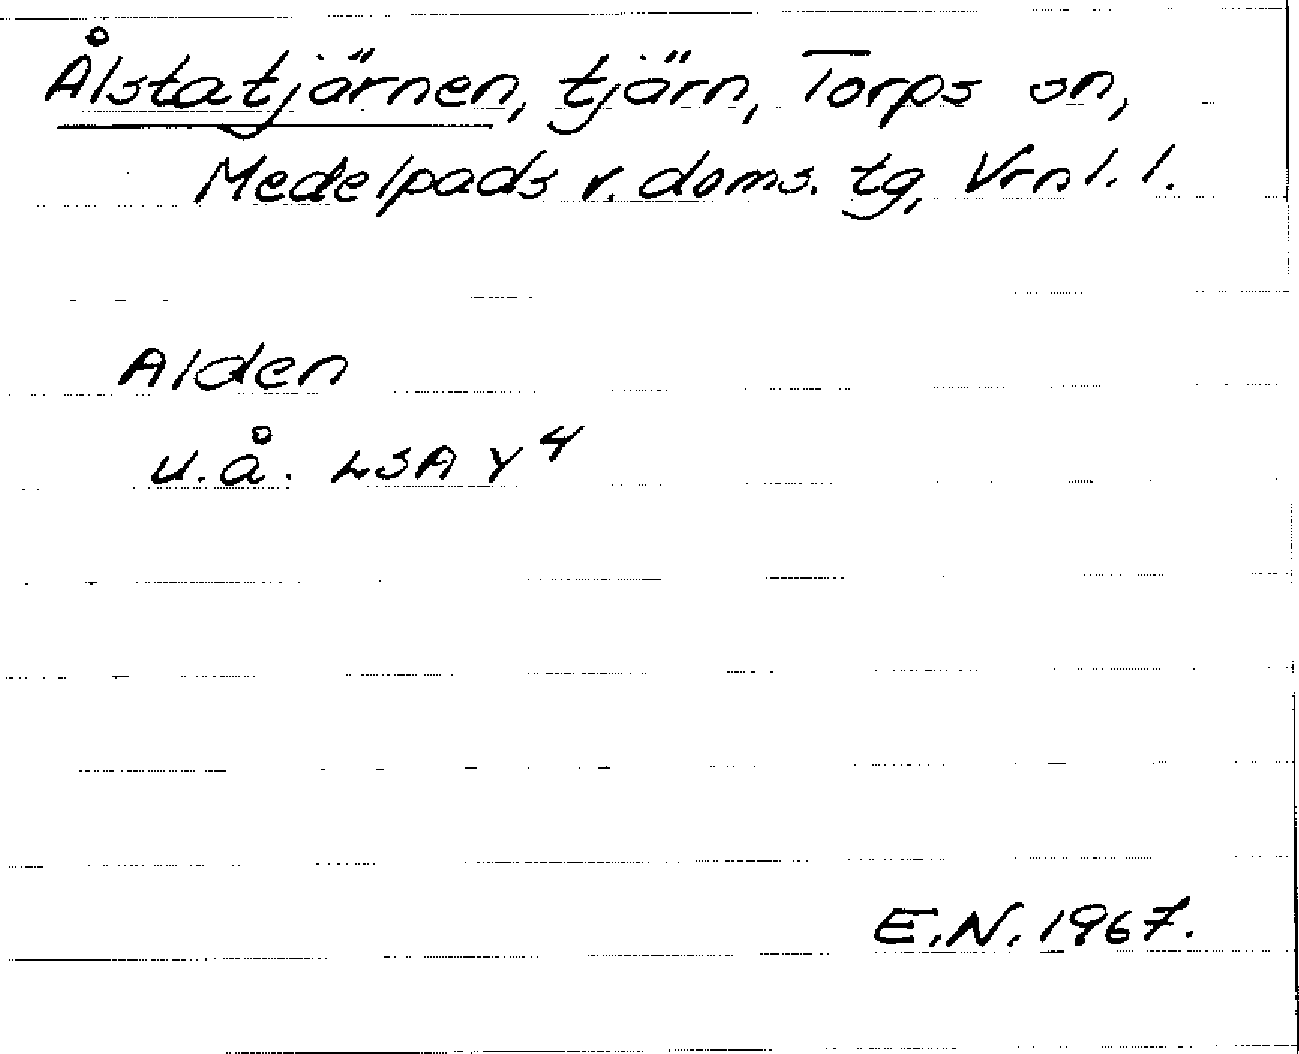 Ålstatjärnen, tjärn, Torps sn,
Medelpads v. doms. tg, Vrnl. l.
Alden
u.å. LSA Y 4
E.N. 1967.